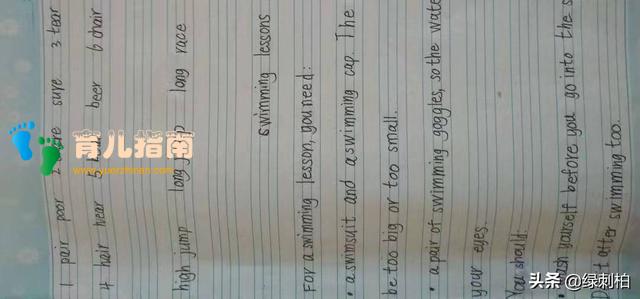 1 pair poor 2 sure 3 tear
4 hair hear 5 beer 6 chair
high jump long long race
swimming lessons
For a swimming lesson, you need:
• a swimsuit and a swimming cap. The
be too big or too small.
• a pair of swimming goggles, so the wate
your eyes.
You should:
yourself before you go into the s
it after swimming too.
育儿指南
www.yuerzhinan.com
头条 @绿刺柏